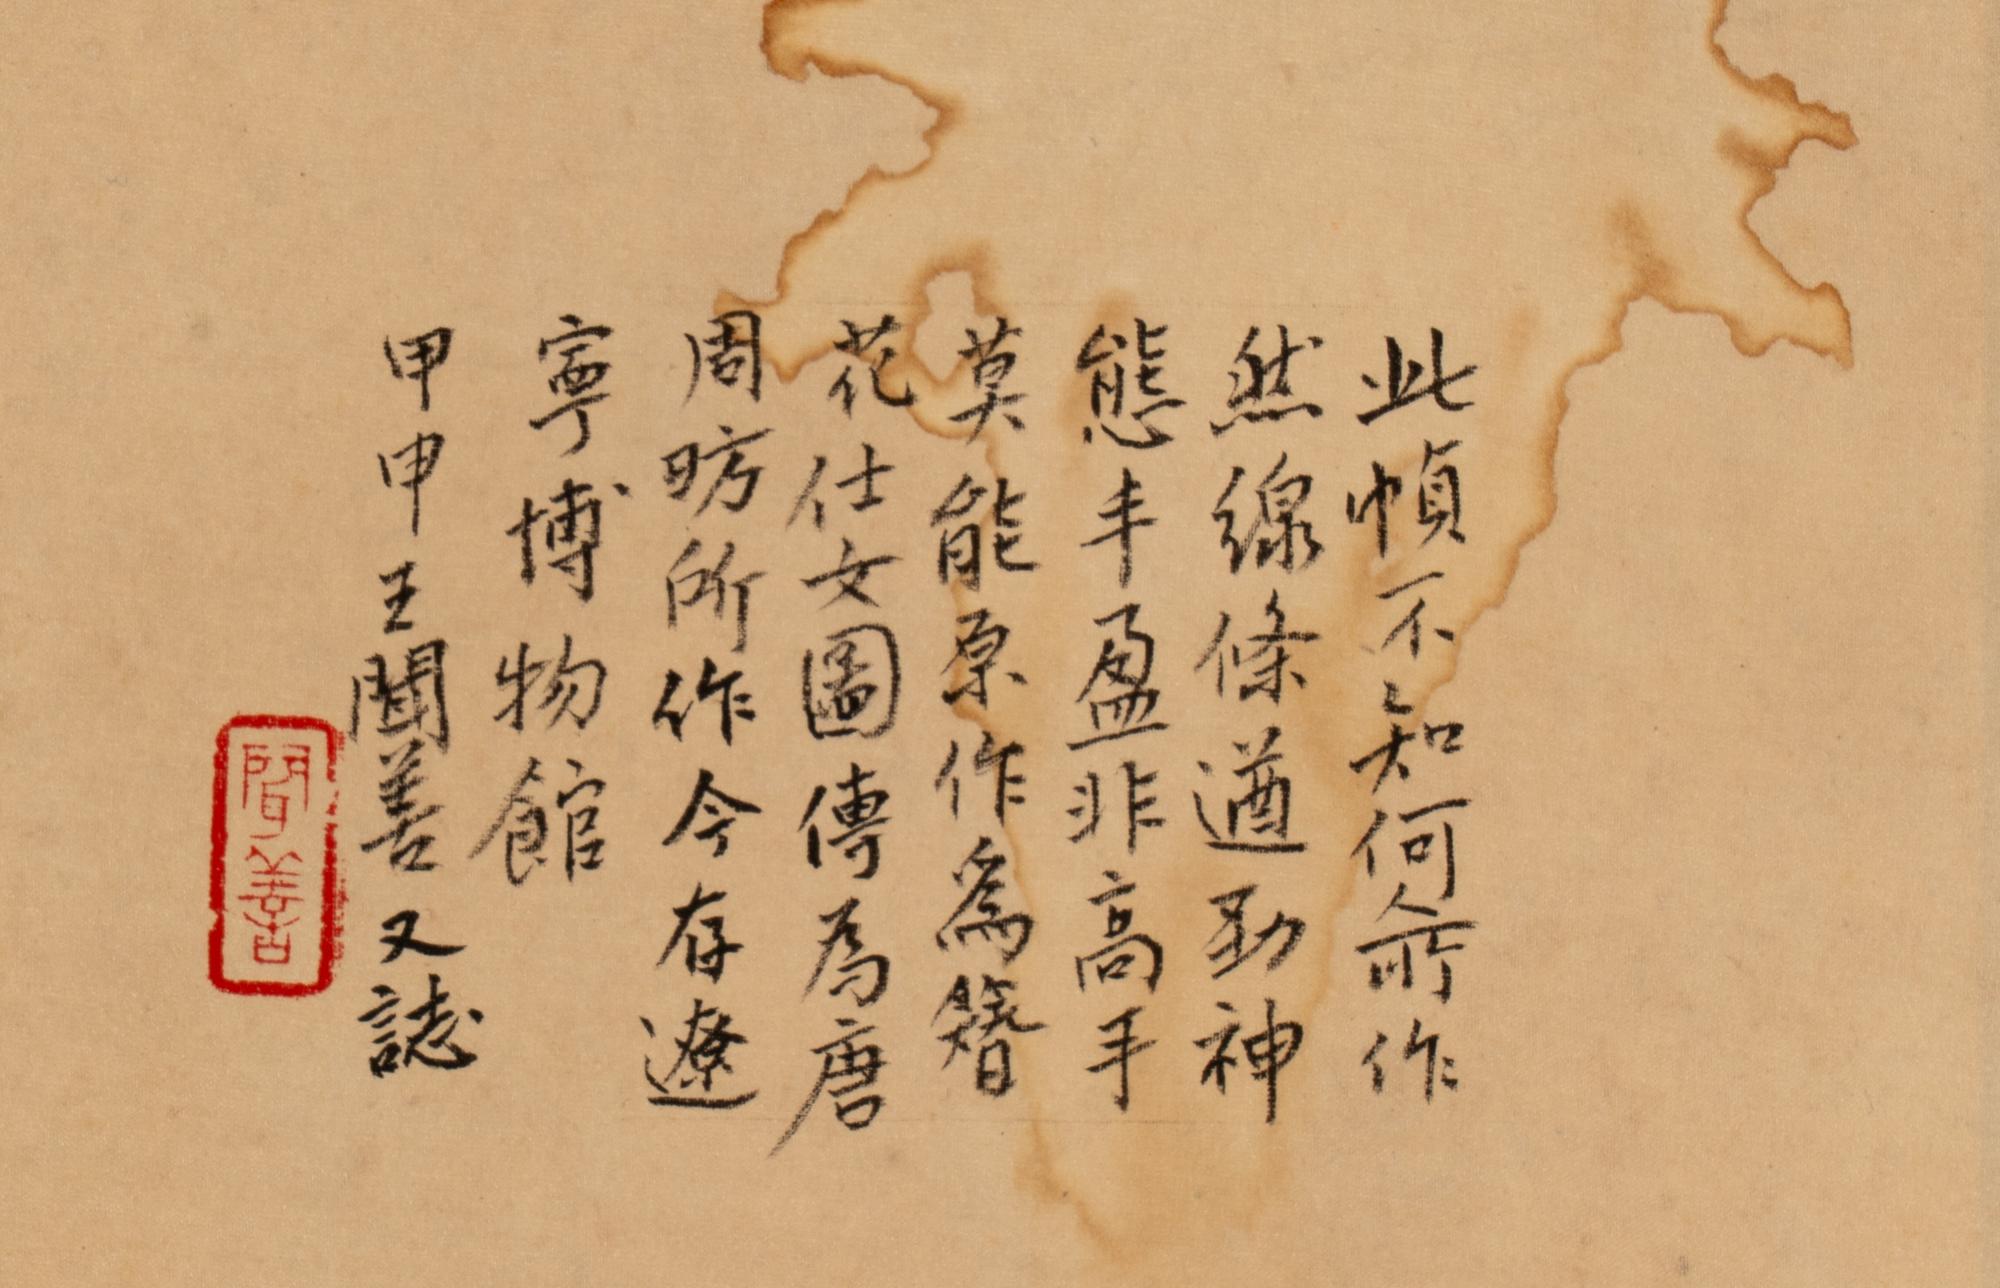 此幀不知何所作
然線條遒勁神
態丰盈非高手
莫能原作為簪
花仕女圖傳為唐
周昉所作今存遼
寧博物館
甲申王聞善又誌
聞善